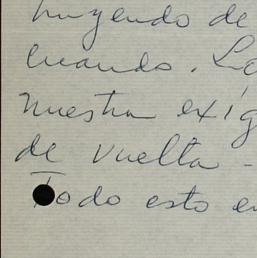 huyendo de
cuando. Lo
nuestra exíg
de vuelta -
Todo esto en